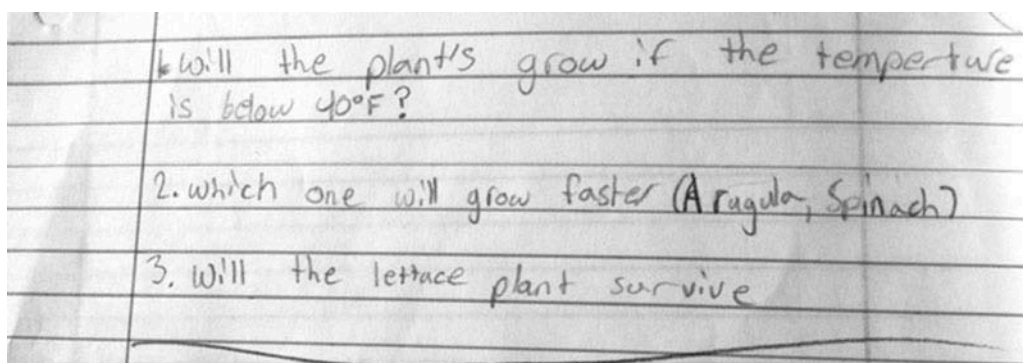 1. will the plant's grow if the temperture
is below 40°F?
2. which one will grow faster (Arugula, Spinach)
3. Will the lettace plant survive